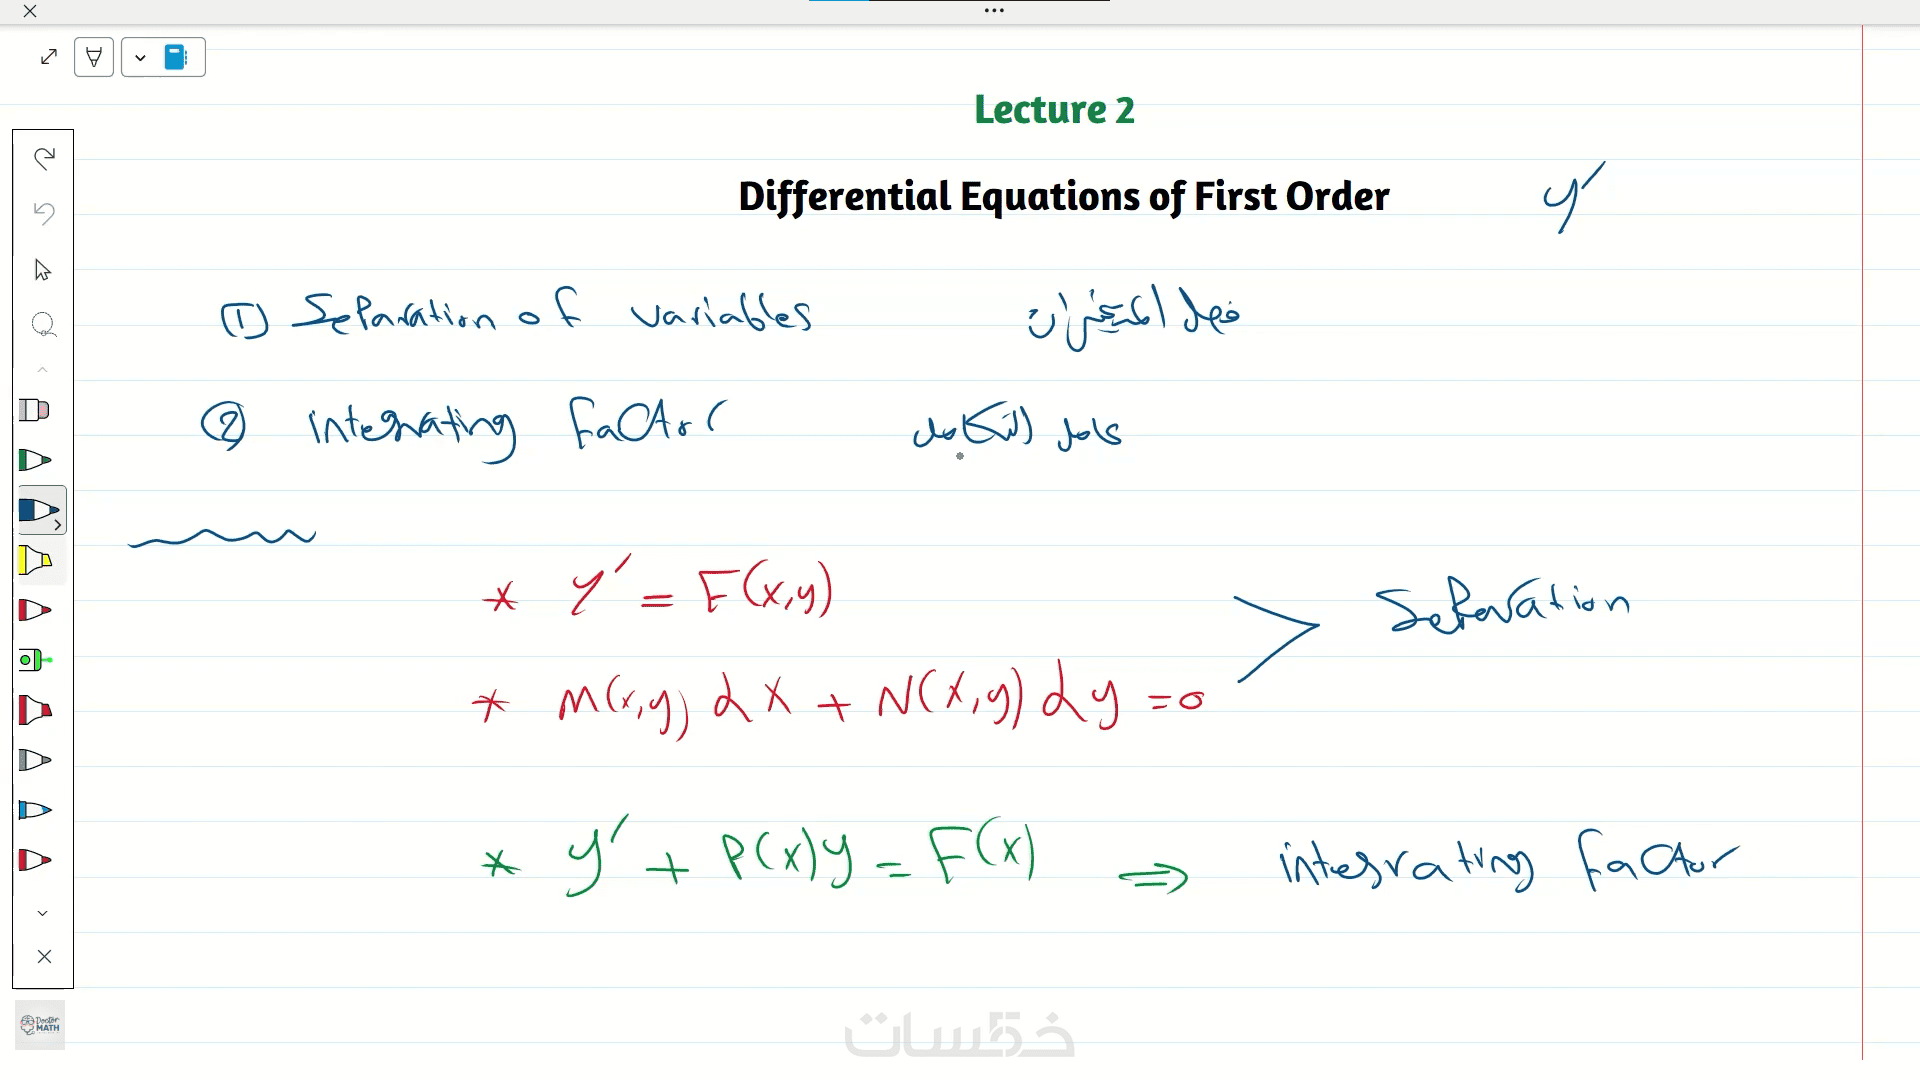 Lecture 2
Differential Equations of First Order y′
① Separation of variables فصل المتغيرات
② integrating factor عامل التكامل
* y′ = F(x,y)
Separation
* M(x,y) dx + N(x,y) dy = 0
* y′ + P(x)y = F(x) ⇒ integrating factor
Doctor MATH
خمسات